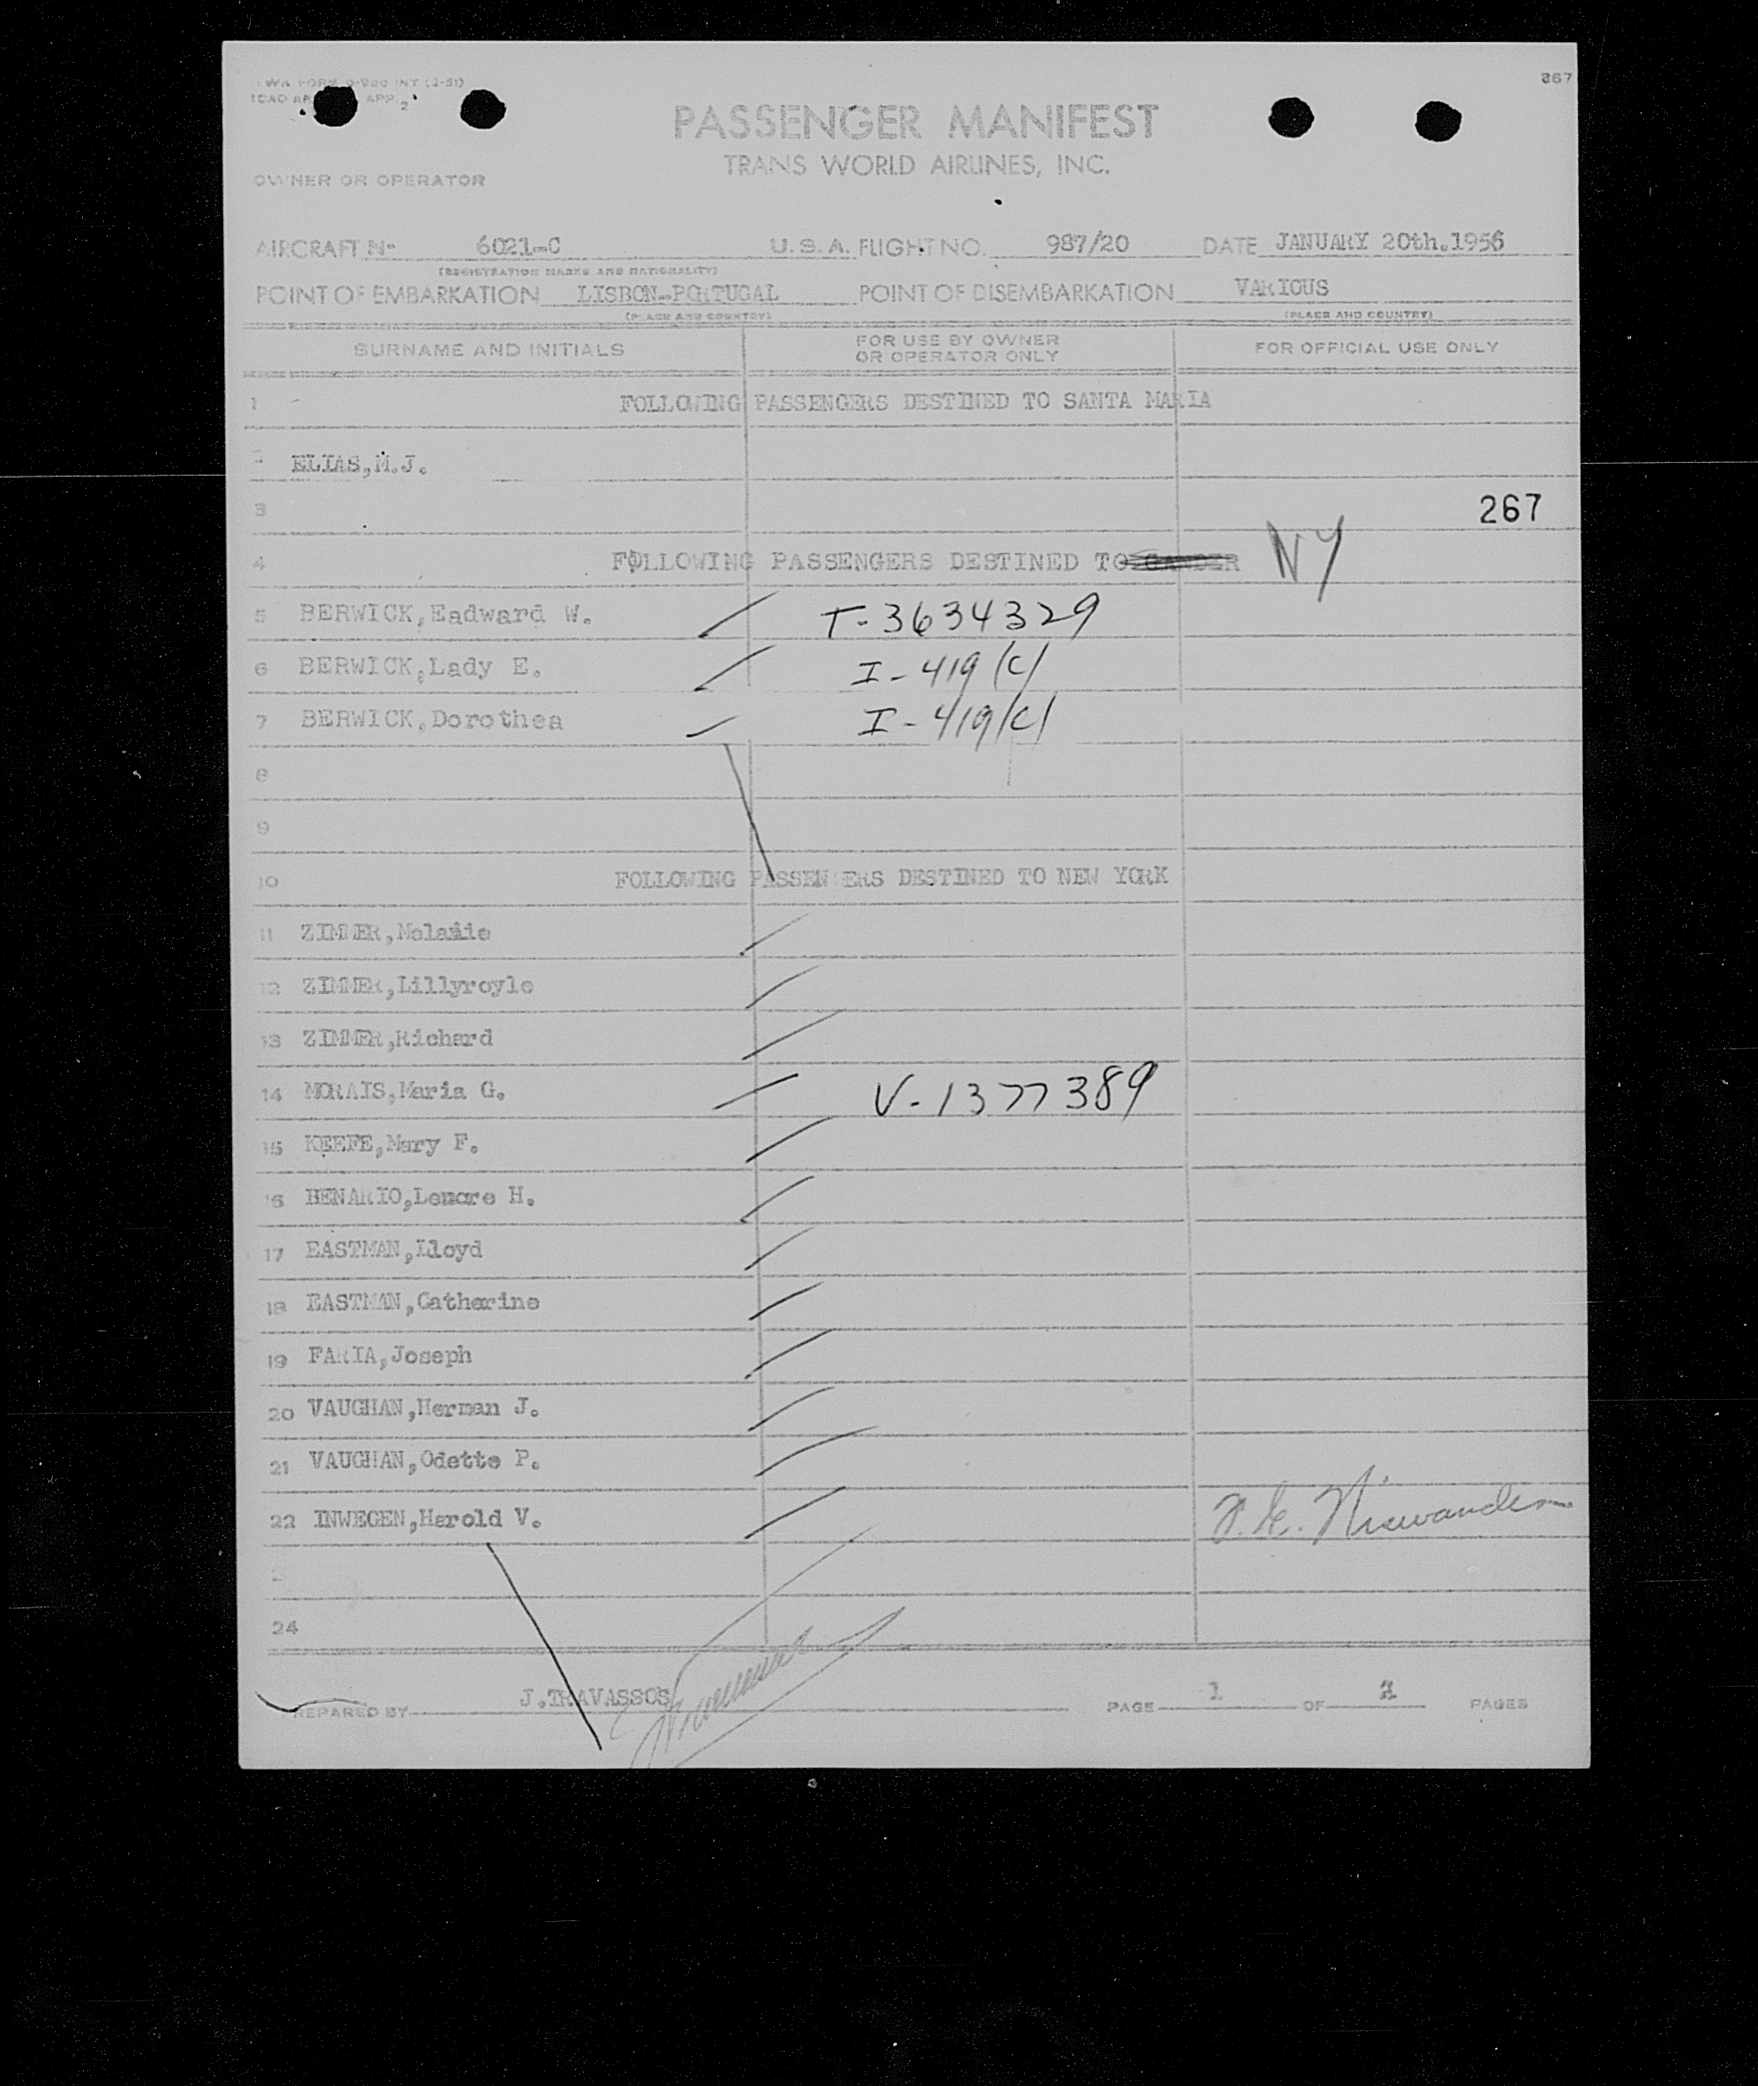 TWA FORM INT (2-51)
ICAO AP APP. 2
867
PASSENGER MANIFEST
TRANS WORLD AIRLINES, INC.
OWNER OR OPERATOR
AIRCRAFT Nº 6021-C U. S. A. FLIGHT NO. 987/20 DATE JANUARY 20th.1956
(REGISTRATION MARKS AND NATIONALITY)
POINT OF EMBARKATION LISBON-PORTUGAL POINT OF DISEMBARKATION VARIOUS
(PLACE AND COUNTRY) (PLACE AND COUNTRY)
SURNAME AND INITIALS FOR USE BY OWNER OR OPERATOR ONLY FOR OFFICIAL USE ONLY
1 FOLLOWING PASSENGERS DESTINED TO SANTA MARIA
2 ELIAS,M.J.
3 267
4 FOLLOWING PASSENGERS DESTINED TO GANDER NY
5 BERWICK,Eadward W. T-3634329
6 BERWICK,Lady E. I-419(C)
7 BERWICK,Dorothea I-419(C)
8
9
10 FOLLOWING PASSENGERS DESTINED TO NEW YORK
11 ZIMMER,Melanie
12 ZIMMER,Lillyroyle
13 ZIMMER,Richard
14 MORAIS,Maria G. V-1377389
15 KEEFE,Mary F.
16 BENARIO,Lenore H.
17 EASTMAN,Lloyd
18 EASTMAN,Catherine
19 FARIA,Joseph
20 VAUGHAN,Herman J.
21 VAUGHAN,Odette P.
22 INWEGEN,Harold V.
24
PREPARED BY J.TRAVASSOS PAGE 1 OF 2 PAGES